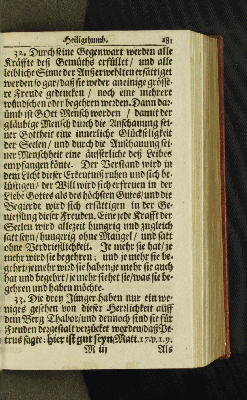 Heiligthumb. 181
32. Durch seine Gegenwart werden alle
Kräffte deß Gemüths erfüllet / und alle
leibliche Sinne der Außerwehlten ersättiget
werden so gar / daß sie weder an einige grösse-
re Freude gedencken / noch eine mehrere
wündschen oder begehren werden. Dann dar-
umb ist GOtt Mensch worden / damit der
gläubige Mensch durch die Anschauung sei-
ner Gottheit eine innerliche Glückseligkeit
der Seelen / und durch die Anschauung sei-
ner Menschheit eine äusserliche deß Leibes
empfangen könte. Der Verstand wird in
dem Licht dieser Erkentnuß ruhen und sich be-
lüstigen / der Will wird sich erfreuen in der
Liebe Gottes als des höchsten Gutes / und die
Begierde wird sich ersättigen in der Ge-
niessung dieser Freuden. Eine jede Krafft der
Seelen wird allezeit hungrig und zugleich
satt seyn / hungrig ohne Mangel / und satt
ohne Verdrießlichkeit. Je mehr sie hat / je
mehr wird sie begehren; und je mehr sie be-
gehrt / je mehr wird sie haben; je mehr sie auch
hat und begehrt / je mehr siehet sie / was sie be-
gehren und haben möchte.
33. Die drey Jünger haben nur ein we-
niges gesehen von dieser Herrlichkeit auff
dem Berg Thabor / und dennoch sind sie für
Freuden dergestalt verzücket worden / daß Pe-
trus sagte: hier ist gut seyn, Matt. 17. v. 1. 9.
M iij Als